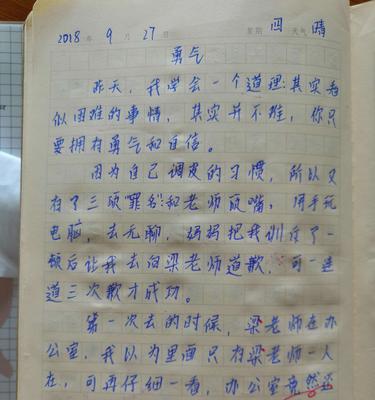 2018 年 9 月 27 日 星期 四 天气 晴
勇气
昨天，我学会一个道理：其实看
似困难的事情，其实并不难，你只
要拥有勇气和自信。
因为自己调皮的习惯，所以又
有了三项"罪名"：和老师顶嘴，用手玩
电脑，去无聊，妈妈把我训斥了一
顿后让我去向梁老师道歉，可一连
道三次歉才成功。
第一次去的时候，梁老师在办
公室，我以为里面只有梁老师一人
在，可再仔细一看，办公室竟然还